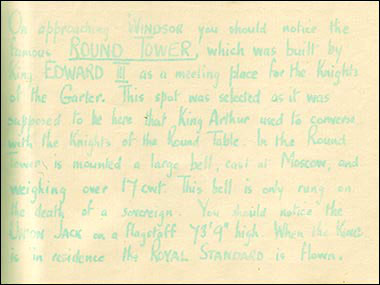 On approaching WINDSOR you should notice the
famous ROUND TOWER, which was built by
King EDWARD III as a meeting place for the Knights
of the Garter. This spot was selected as it was
supposed to be here that King Arthur used to converse
with the Knights of the Round Table. In the Round
Tower is mounted a large bell, cast at Moscow, and
weighing over 17 cwt. This bell is only rung on
the death of a sovereign. You should notice the
UNION JACK on a flagstaff 73' 9" high. When the King
is in residence the ROYAL STANDARD is flown.